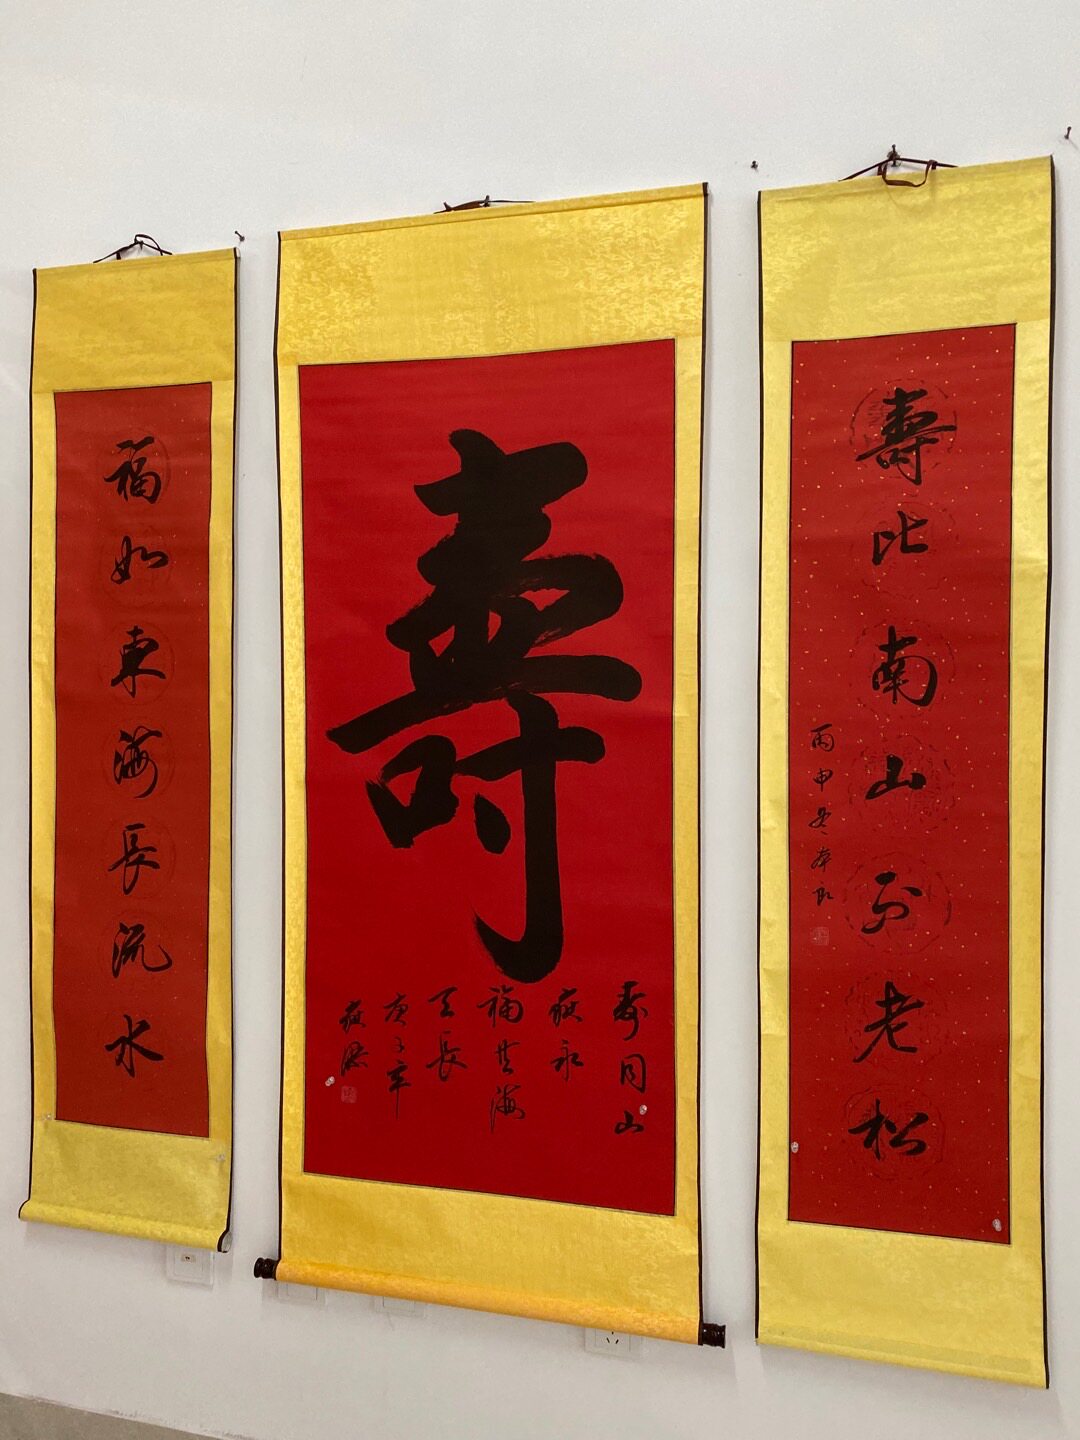 福如東海長流水
壽
壽同山
嶽永
福共海
天長
庚子年
壽比南山不老松
丙申冬